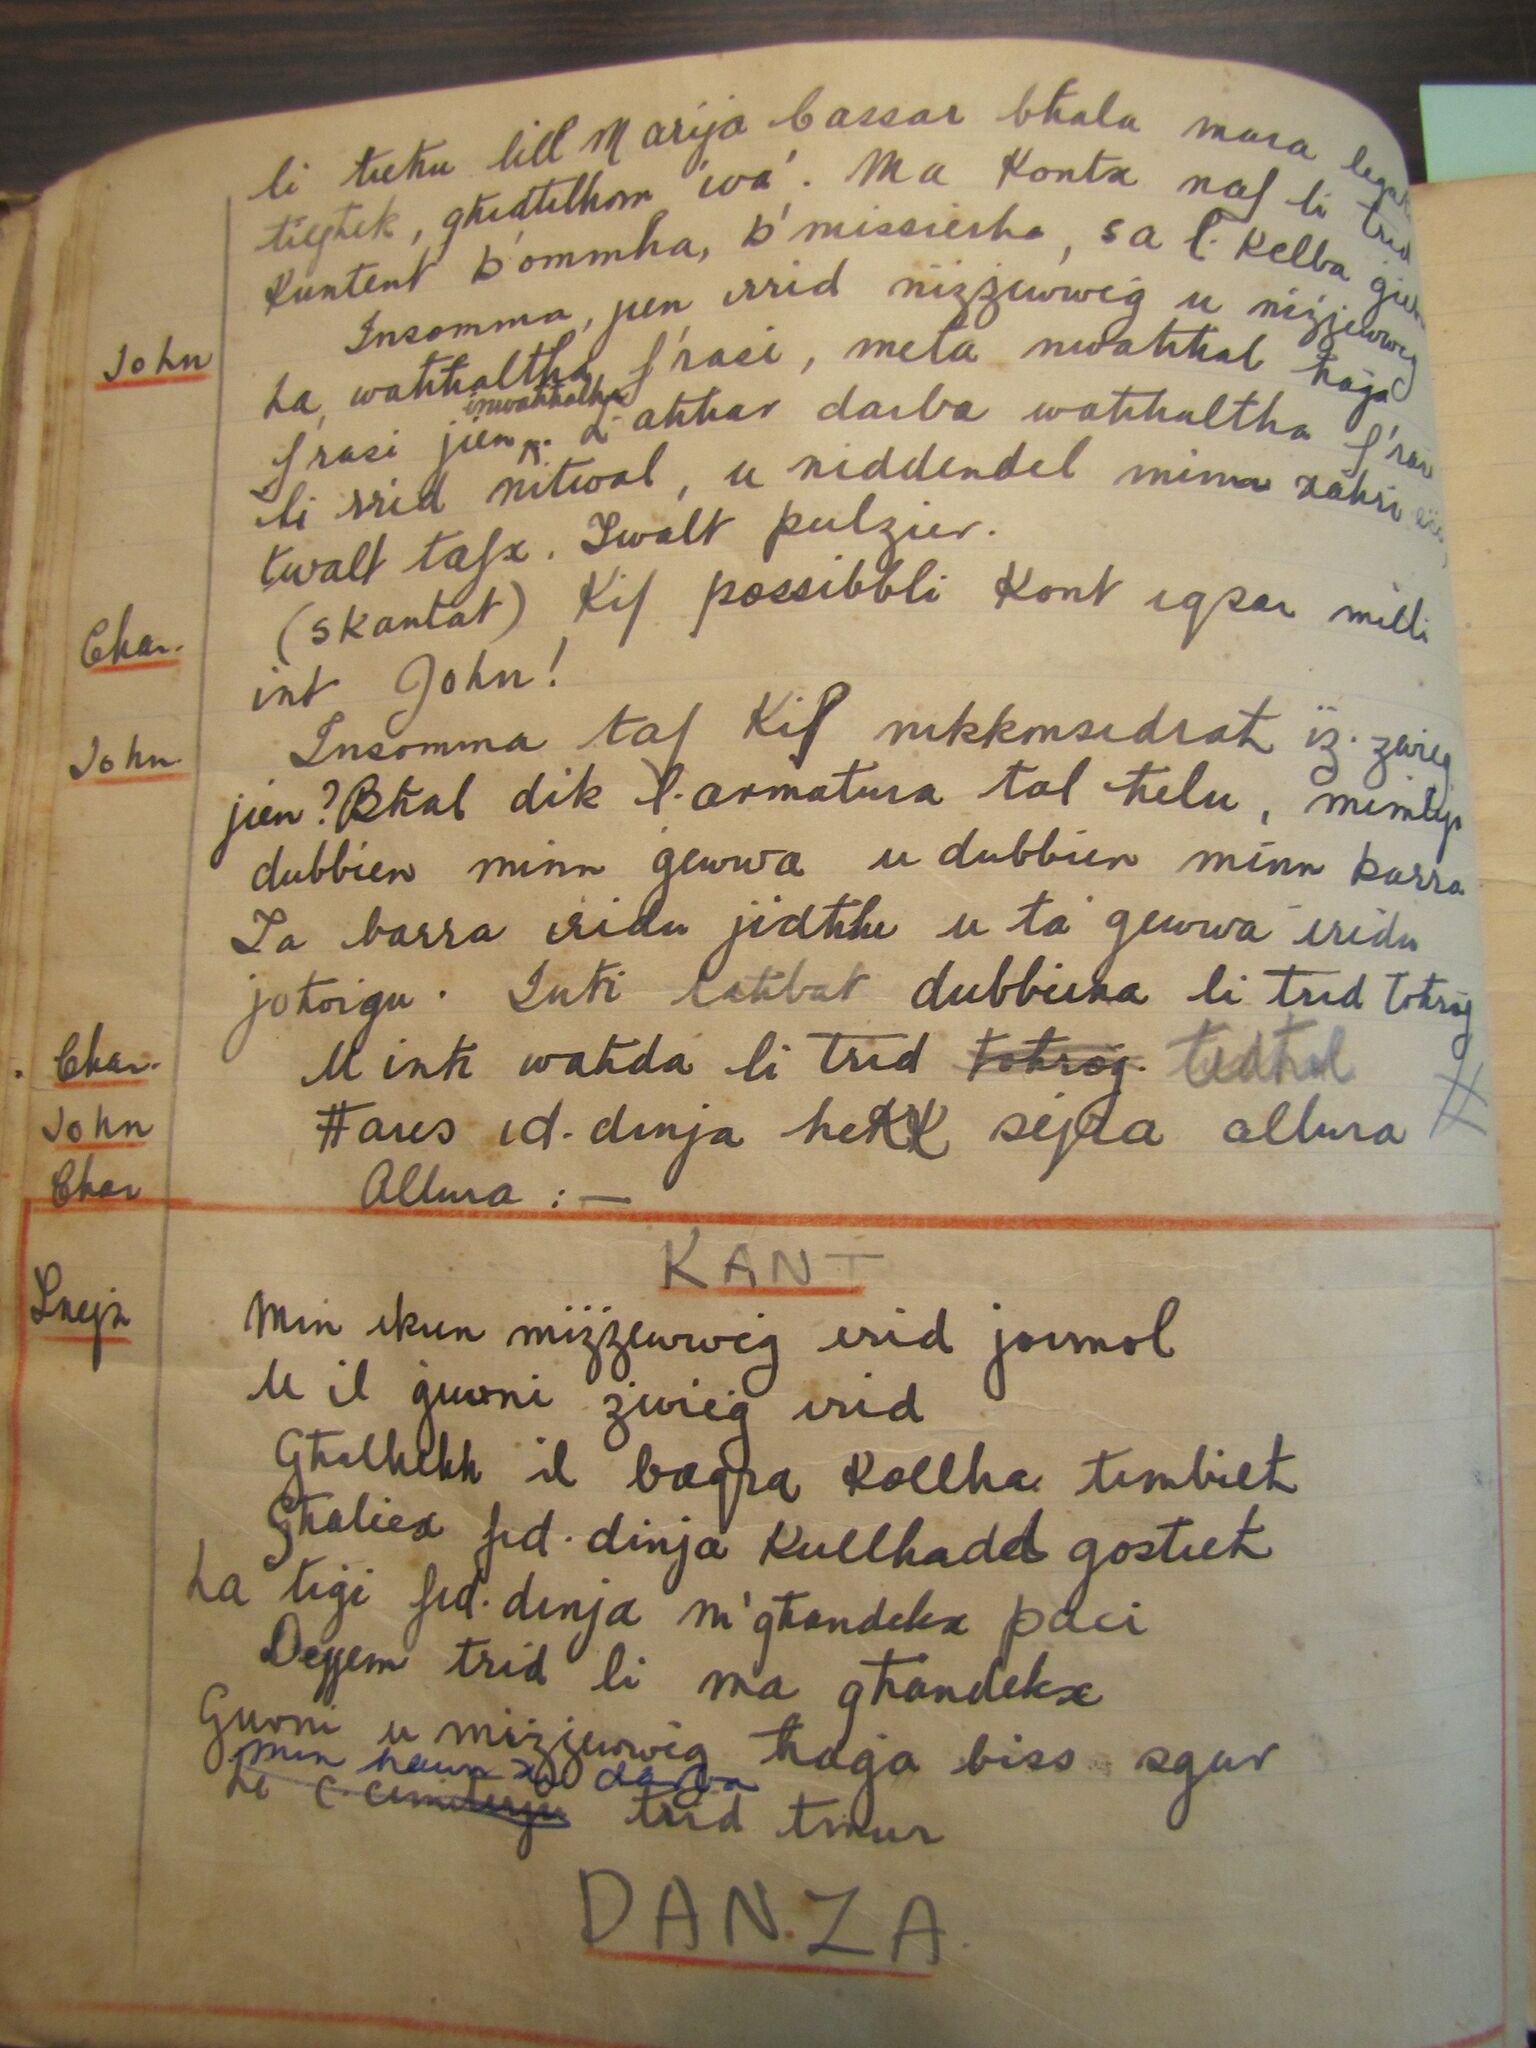 li tieħu lill Marija Cassar bħala mara
tiegħek, għedtilhom 'iva'. Ma Kontx naf li trid
Kuntent b'ommha, b'missierha, sa l. Kelba
John Insomma, jien irrid niżżewweġ u niżżewweġ
La waħħaltha f'rasi, meta nwaħħal ħaġa
f'rasi jien inwaħħalha. L-aħħar darba waħħaltha f'rasi
li rrid nitwal, u niddendel minn xagħri
twalt tafx. Twalt pulzier.
Char. (skantat) Kif possibbli Kont iqsar milli
int John!
John Insomma taf Kif nikkonsidrah iż-żwieġ
jien? Bħal dik l-armatura tal ħelu, mimlija
dubbien minn ġewwa u dubbien minn barra
Ta barra iridu jidħlu u ta ġewwa iridu
joħorġu. Inti laħbat dubbiena li trid toħroġ
Char. U inti waħda li trid toħroġ. tidħol
John Ħares id-dinja hekk sejra allura
Char Allura : —
KANT
Tnejn Min ikun miżżewweġ irid jormol
U il ġuvni żwieġ irid
Għalhekk il baqra Kollha timbieħ
Għaliex fid-dinja Kullħadd gostieħ
La tiġi fid-dinja m'għandekx paċi
Dejjem trid li ma għandekx
Ġuvni u miżżewweġ ħaġa biss sgur
min hawn xi darba
Li ċ-ċimiterju trid tmur
DANZA.